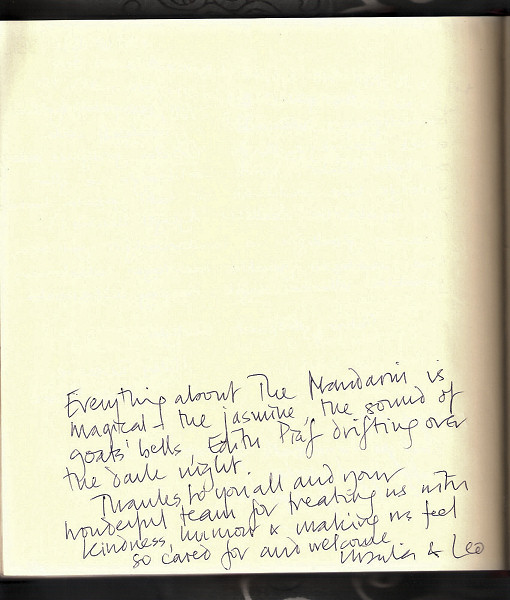 Everything about The Mandarin is
magical – the jasmine, the sound of
goats' bells, Edith Piaf drifting over
the dark night.
Thanks to you all and your
wonderful team for treating us with
kindness, humour & making us feel
so cared for and welcome
Ursula & Leo